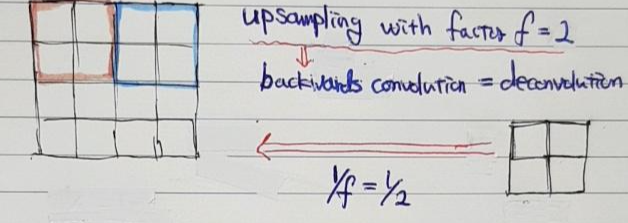 upsampling with factor f = 2
backwards convolution = deconvolution
1/f = 1/2